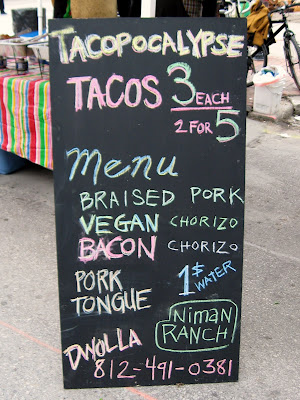 TACOPOCALYPSE
TACOS 3 EACH
2 FOR 5
Menu
BRAISED PORK
VEGAN CHORIZO
BACON CHORIZO
PORK TONGUE
1$ WATER
NIMAN RANCH
DWOLLA
812-491-0381